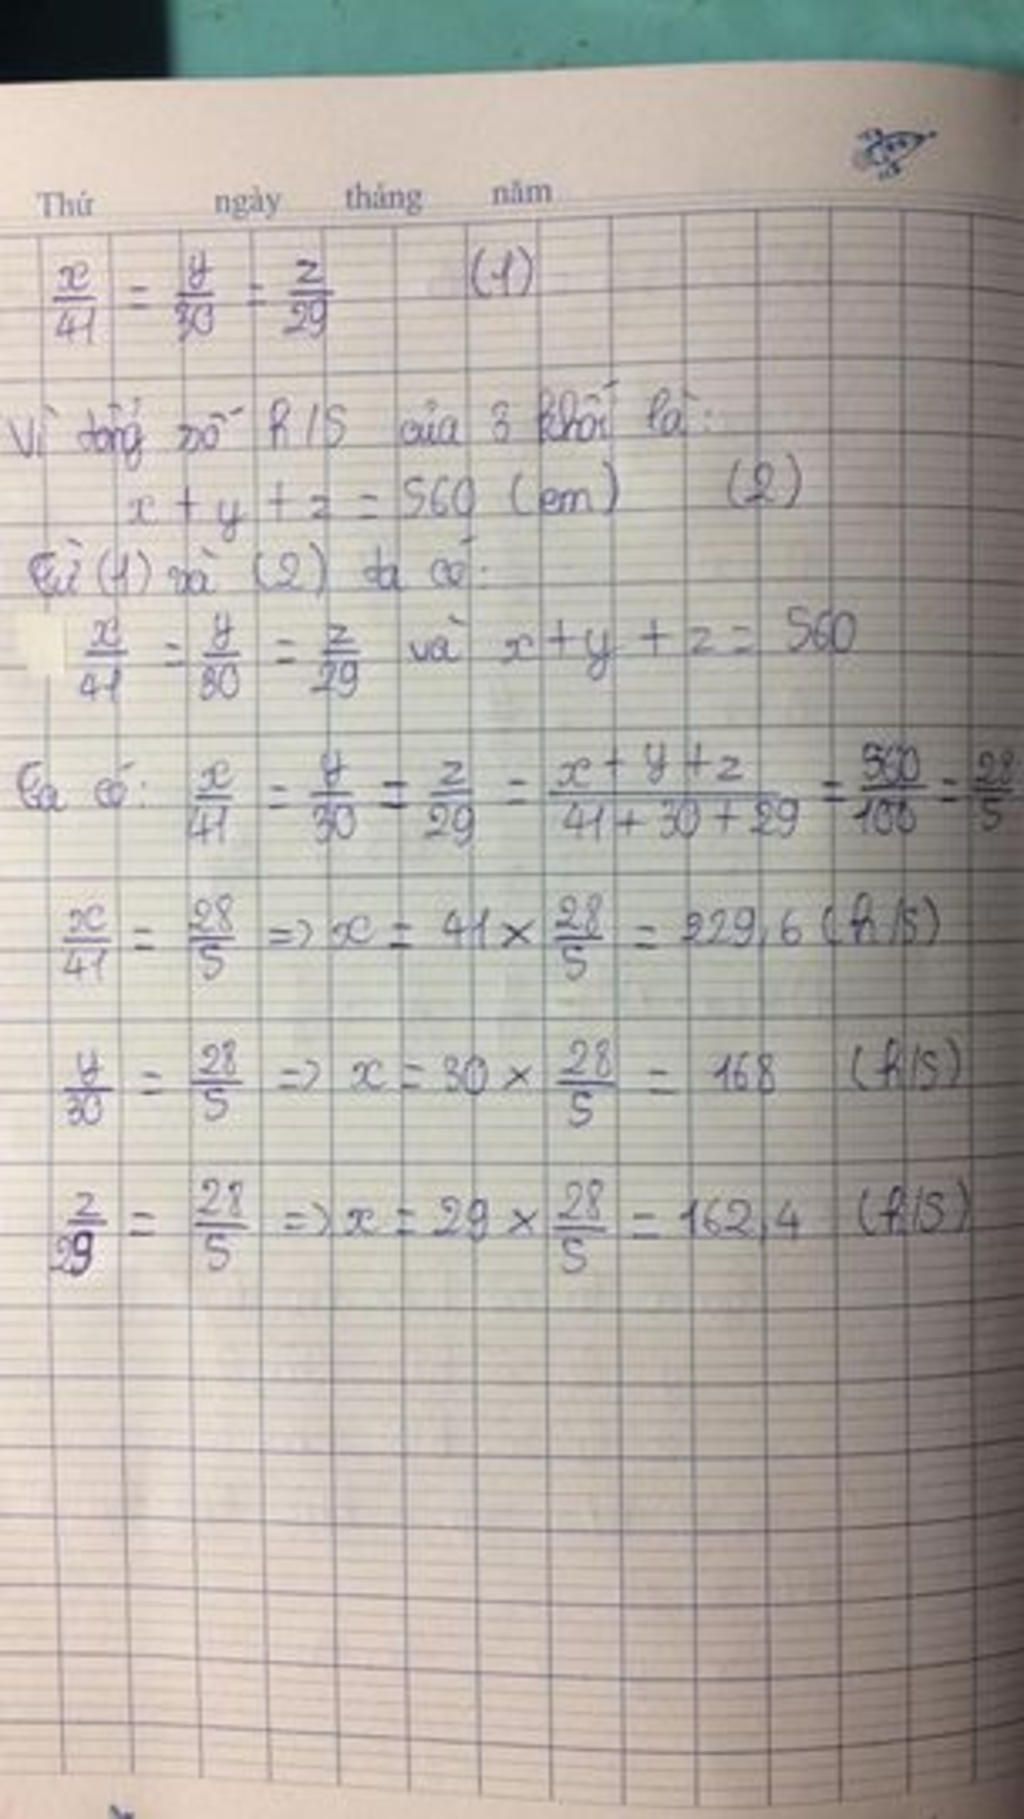 Thứ ngày tháng năm
x/41 = y/30 = z/29 (1)
Vì tổng số h/s của 3 khối là:
x + y + z = 560 (em) (2)
Từ (1) và (2) ta có:
x/41 = y/30 = z/29 và x + y + z = 560
Ta có: x/41 = y/30 = z/29 = x + y + z/41 + 30 + 29 = 560/100 = 28/5
x/41 = 28/5 => x = 41 × 28/5 = 229,6 (h/s)
y/30 = 28/5 => x = 30 × 28/5 = 168 (h/s)
z/29 = 28/5 => x = 29 × 28/5 = 162,4 (h/s)